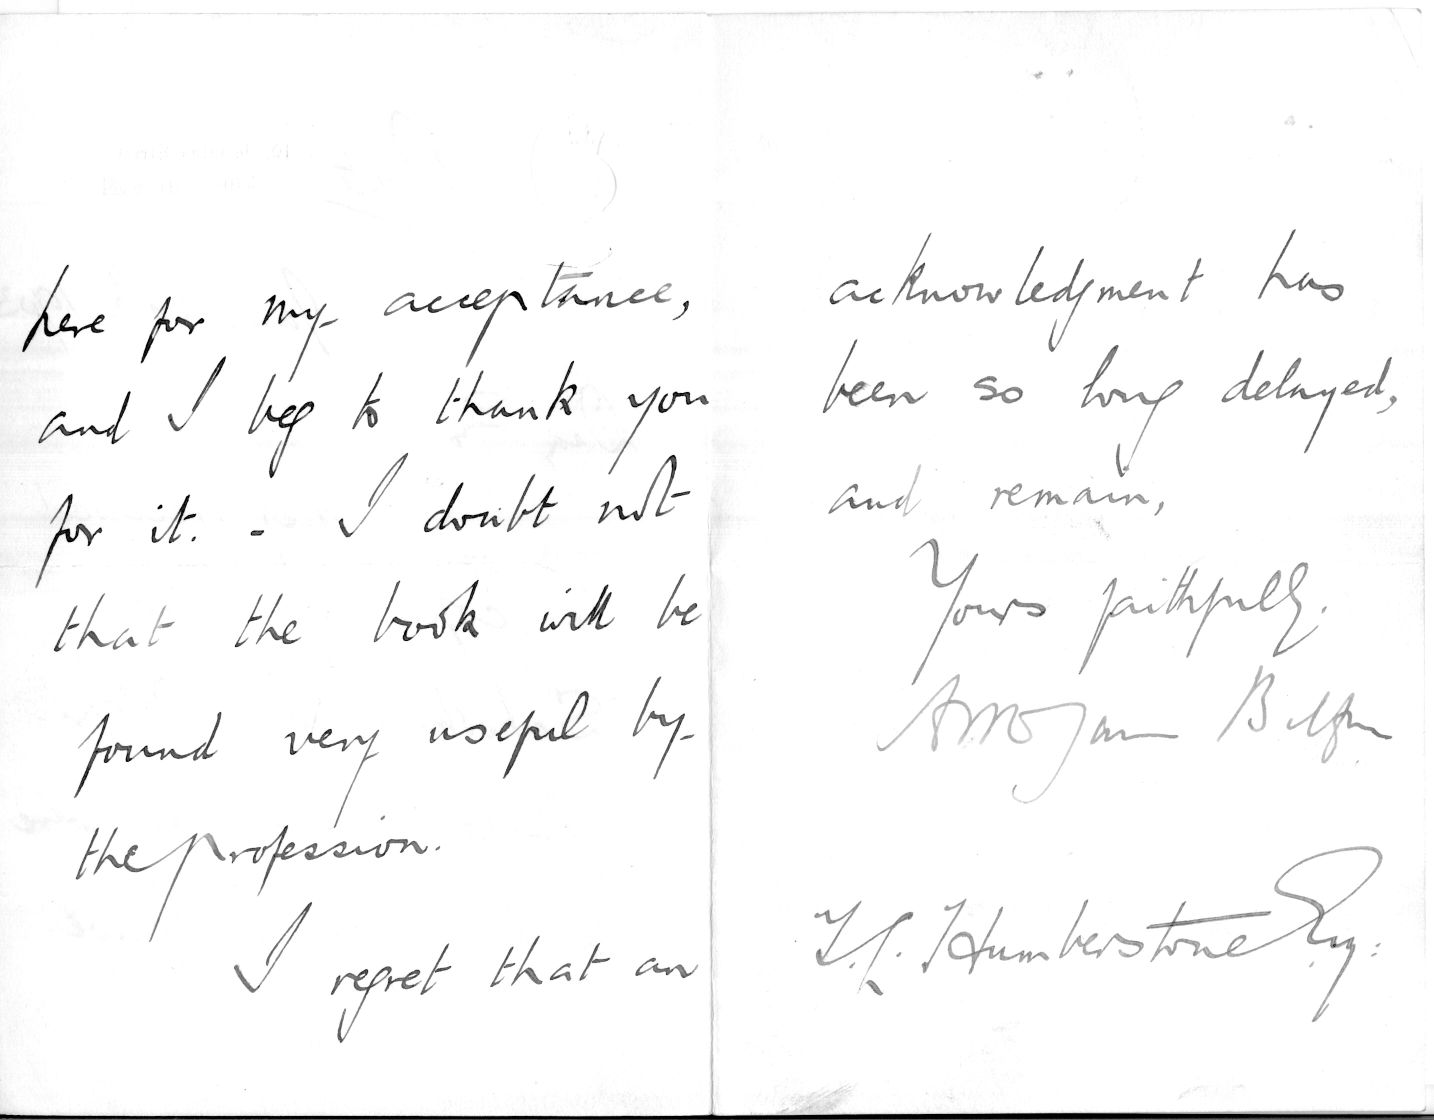 here for my acceptance,
and I beg to thank you
for it. - I doubt not
that the book will be
found very useful by
the profession.
I regret that an
acknowledgment has
been so long delayed,
and remain,
Yours faithfully.
Humberstone Esq: